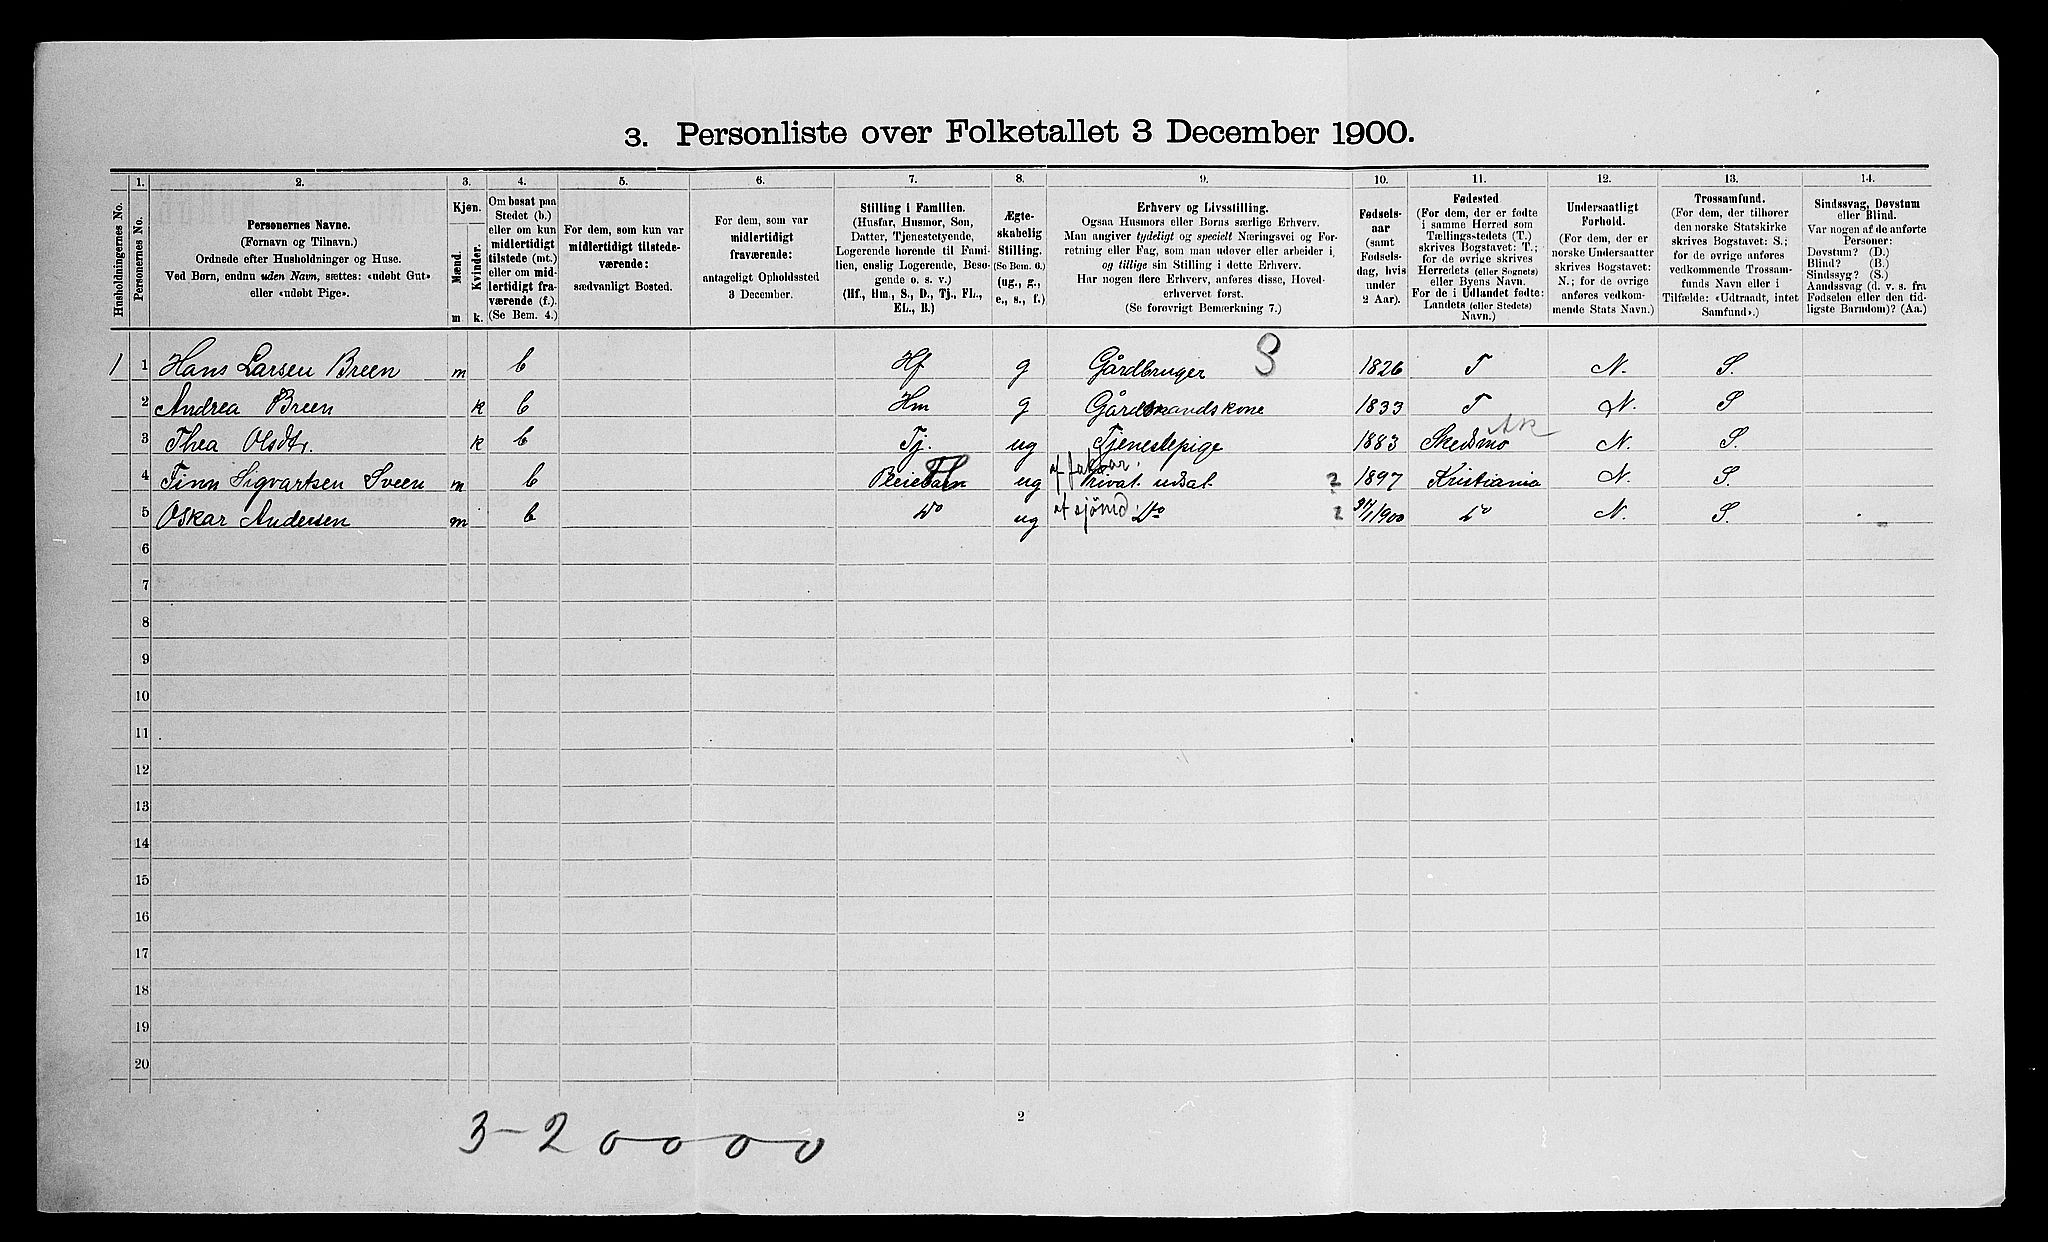 3. Personliste over Folketallet 3 December 1900.
1. 2. 3. 4. 5. 6. 7. 8. 9. 10. 11. 12. 13. 14.
Husholdningernes No.
Personernes No.
Personernes Navne.
(Fornavn og Tilnavn.)
Ordnede efter Husholdninger og Huse.
Ved Børn, endnu uden Navn, sættes: «udøbt Gut»
eller «udøbt Pige».
Kjøn.
Mænd.
Kvinder.
m k.
Om bosat paa
Stedet (b.)
eller om kun
midlertidigt
tilstede (mt.)
eller om mid-
lertidigt fra-
værende (f.)
(Se Bem. 4.)
For dem, som kun var
midlertidigt tilstede-
værende:
sædvanligt Bosted.
For dem, som var
midlertidigt
fraværende:
antageligt Opholdssted
3 December.
Stilling i Familien.
(Husfar, Husmor, Søn,
Datter, Tjenestetyende,
Logerende hørende til Fami-
lien, enslig Logerende, Besø-
gende o. s. v.)
(Hf., Hm., S., D., Tj., FL.,
EL., B.)
Ægte-
skabelig
Stilling.
(Se Bem. 6.)
(ug., g.,
e., s., f.)
Erhverv og Livsstilling.
Ogsaa Husmors eller Børns særlige Erhverv.
Man angiver tydeligt og specielt Næringsvei og For-
retning eller Fag, som man udøver eller arbeider i,
og tillige sin Stilling i dette Erhverv.
Har nogen flere Erhverv, anføres disse, Hoved-
erhvervet først.
(Se forøvrigt Bemærkning 7.)
Fødsels-
aar
(samt
Fødsels-
dag, hvis
under
2 Aar).
Fødested
(For dem, der er fødte
i samme Herred som
Tællingsstedets (T.)
skrives Bogstavet: T.;
for de øvrige skrives
Herredets (eller Sognets)
eller Byens Navn.
For de i Udlandet fødte:
Landets (eller Stedets)
Navn.)
Undersaatligt
Forhold.
(For dem, der er
norske Undersaatter
skrives Bogstavet:
N.; for de øvrige
anføres vedkom-
mende Stats Navn.)
Trossamfund.
(For dem, der tilhører
den norske Statskirke
skrives Bogstavet: S.;
for de øvrige anføres
vedkommende Trossam-
funds Navn eller i
Tilfælde: «Udtraadt, intet
Samfund».)
Sindssvag, Døvstum
eller Blind.
Var nogen af de anførte
Personer:
Døvstum? (D.)
Blind? (B.)
Sindssyg? (S.)
Aandssvag (d. v. s. fra
Fødselen eller den tid-
ligste Barndom)? (Aa.)
1 1 Hans Larsen Breen m b Hf g Gårdbruger S 1826 T N. S.
2 Andrea Breen k b Hm g Gårdmandskone 1833 T N. S
Ak
3 Thea Olsdtr. k b Tj. ug Tjenestepige 1883 Skedsmo N. S.
4 Finn Sigvartsen Sveen m b Pleiebarn Fl ug privat udsat 2 1897 Kristiania N. S.
5 Oskar Andersen m b Do ug af sjömd Do 2 1900 Do N. S.
6
7
8
9
10
11
12
13
14
15
16
17
18
19
20
2
3-20000